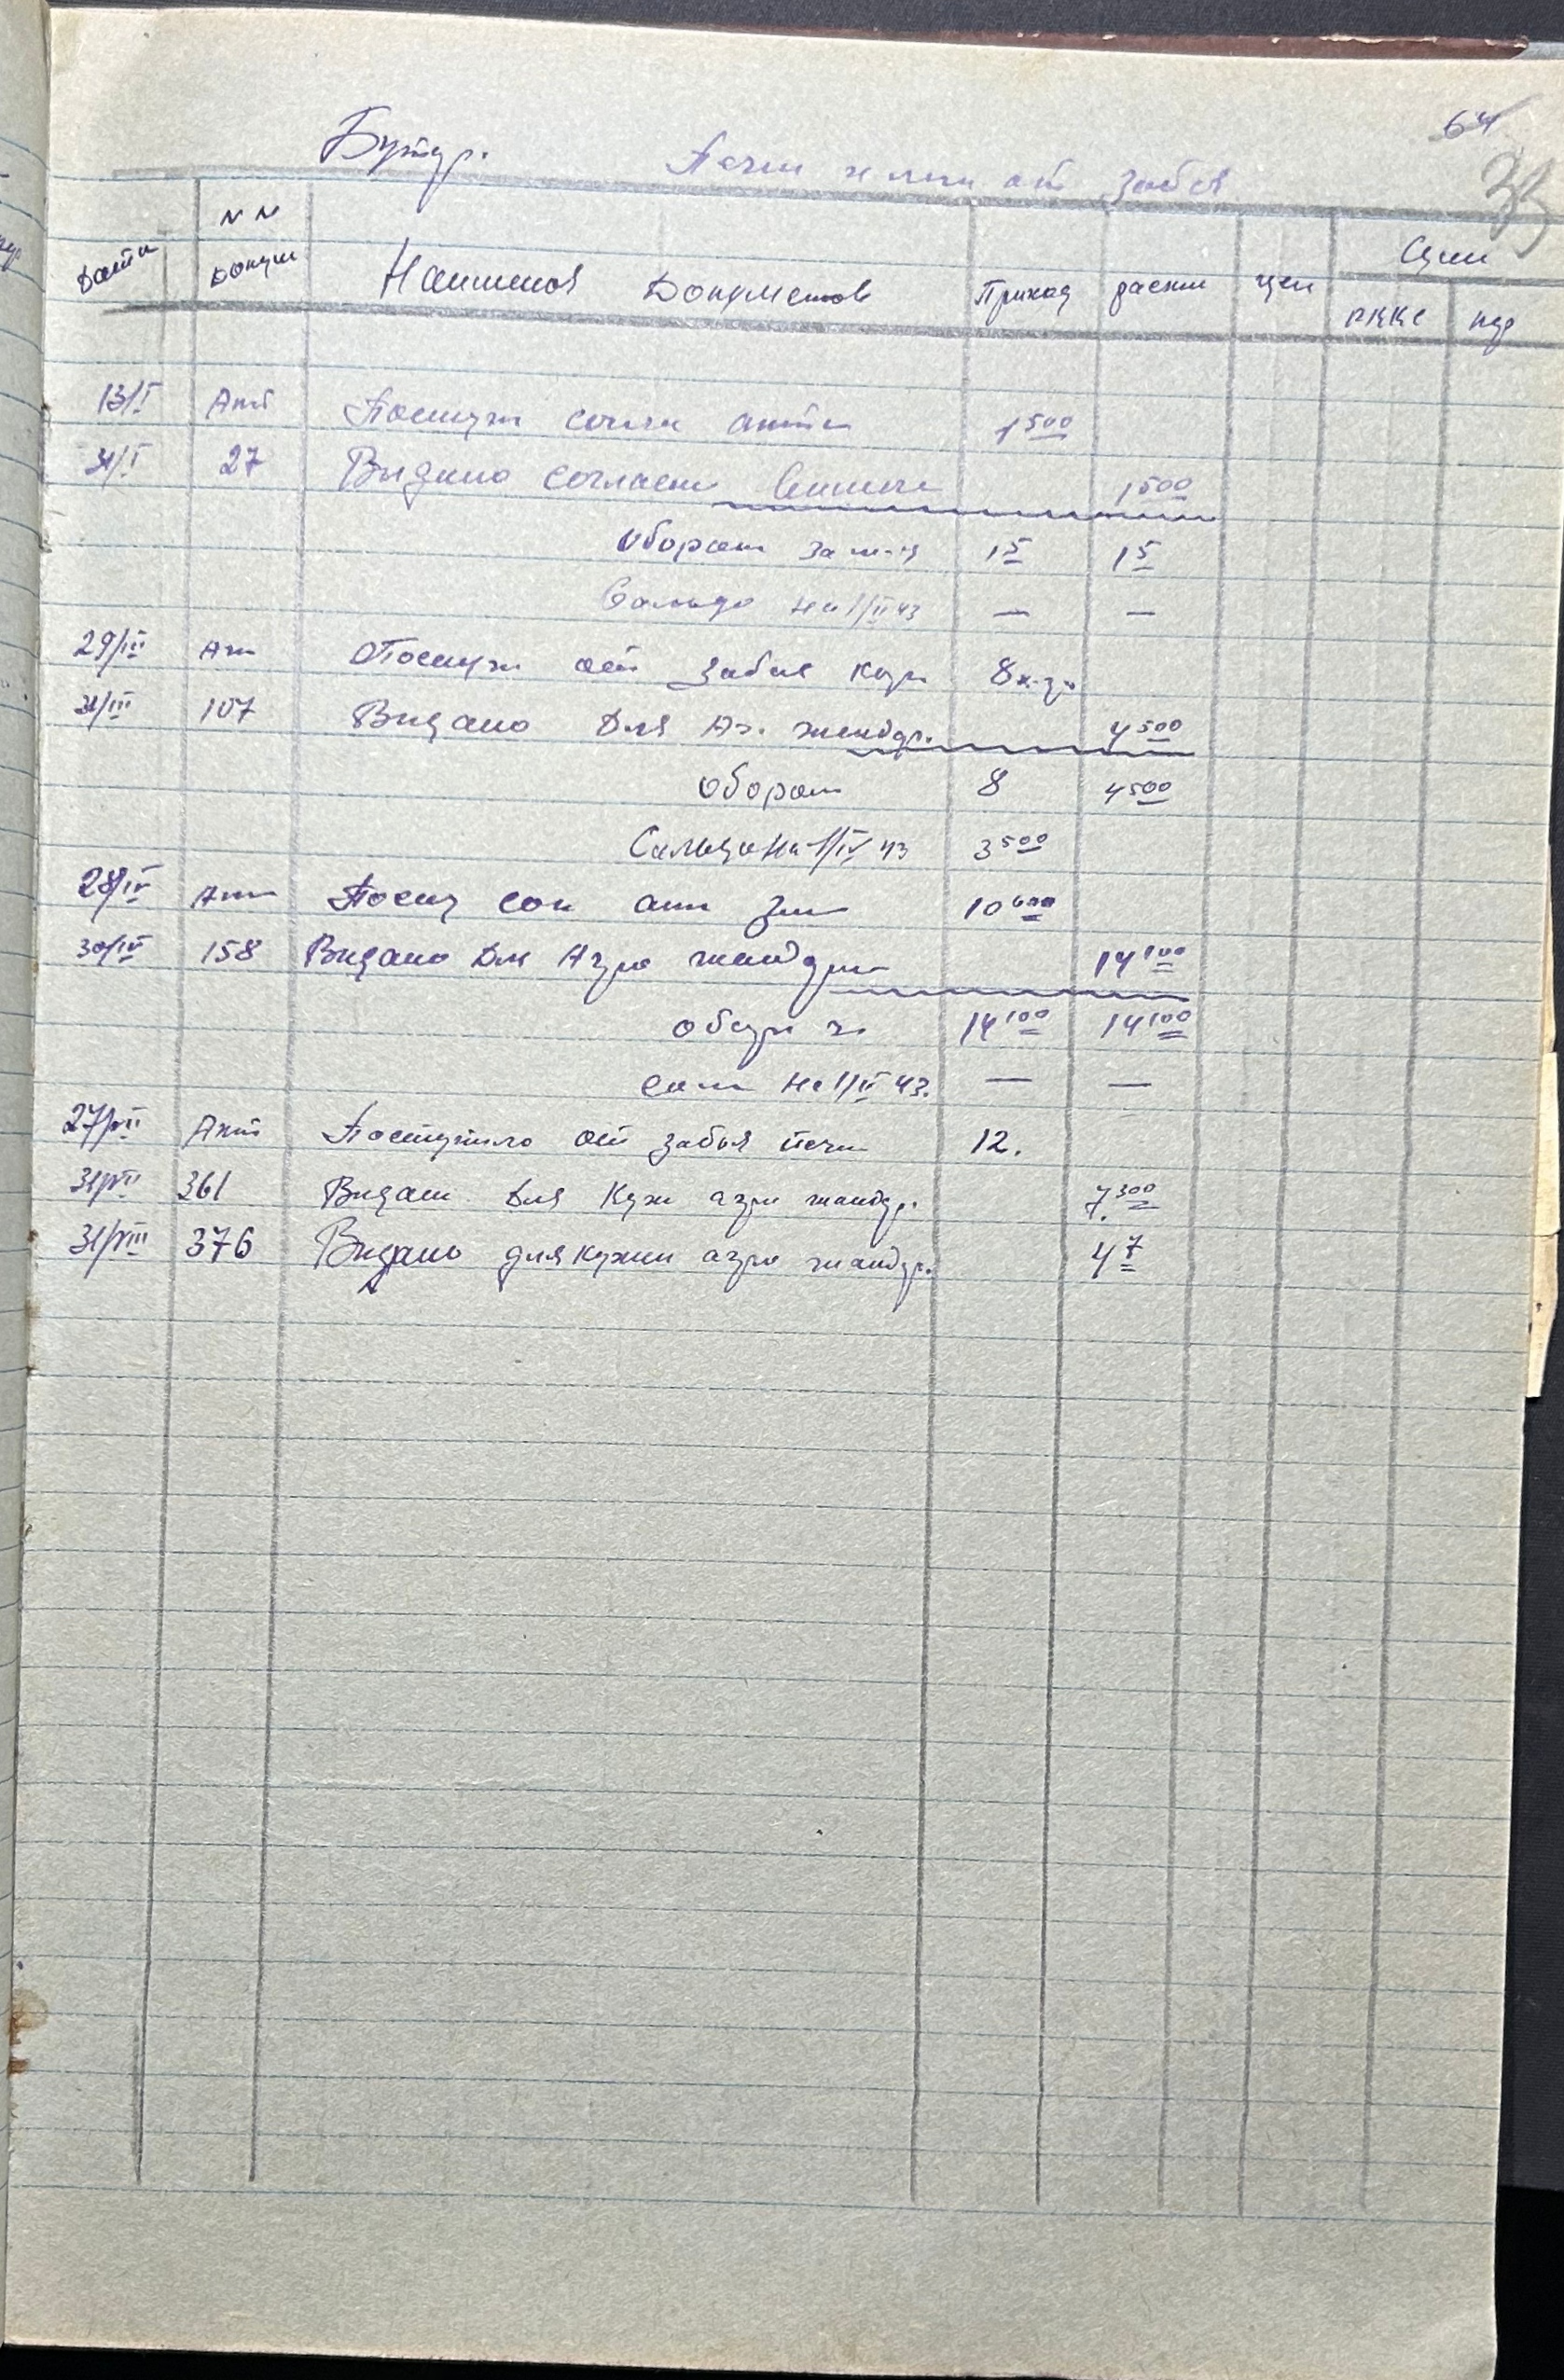 64
33
Бухгр. от забоя
Дата NN Докум Наименов Документов Приход расход цен Сумм
РККС кар
13/I Акт Поступ согл акта 1500
31/I 27 Видано согласно 1500
Оборот за м-ц 15 15
Сальдо на 1/II 43 — —
29/III Акт Поступ от забоя 8 к-гр
31/III 107 Видано Для Аз. жандр. 4500
Оборот 8 4500
Сальдо на 1/IV 43 3500
28/IV Акт Поступ сог акт 10600
30/IV 158 Видано Для Азро жандр 14100
14100 14100
на 1/V 43. — —
27/VII Акт Поступило от забоя печи 12.
31/VII 361 Видано Для Кухн азро жандр. 7.300
31/VIII 376 Видано для кухни азро жандр. 47